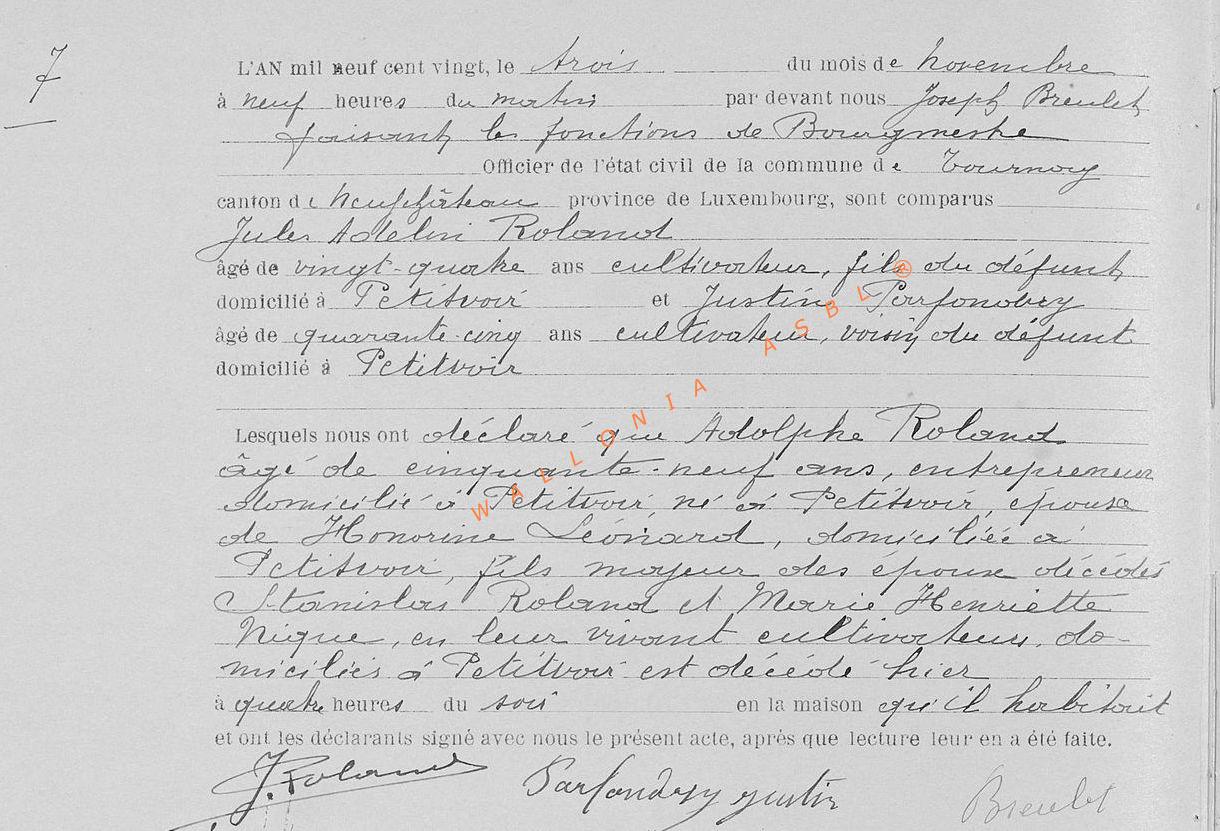 7
L'AN mil neuf cent vingt, le trois du mois de Novembre
à neuf heures du matin par devant nous Joseph Breulet
faisant les fonctions de Bourgmestre
Officier de l'état civil de la commune de Tournay
canton de Neufchâteau province de Luxembourg, sont comparus
Jules Adelin Roland
âgé de vingt-quatre ans cultivateur, fils du défunt
domicilié à Petitvoir et Justin Parfondry
âgé de quarante-cinq ans cultivateur, voisin du défunt
domicilié à Petitvoir
Lesquels nous ont déclaré que Adolphe Roland
âgé de cinquante-neuf ans, entrepreneur
domicilié à Petitvoir, né à Petitvoir, époux
de Honorine Léonard, domiciliée à
Petitvoir, fils majeur des époux décédés
Stanislas Roland et Marie Henriette
Nique, en leur vivant cultivateurs, do-
miciliés à Petitvoir est décédé hier
à quatre heures du soir en la maison qu'il habitait
et ont les déclarants signé avec nous le présent acte, après que lecture leur en a été faite.
J. Roland Parfondry Justin Breulet
WALLONIA ASBL ®